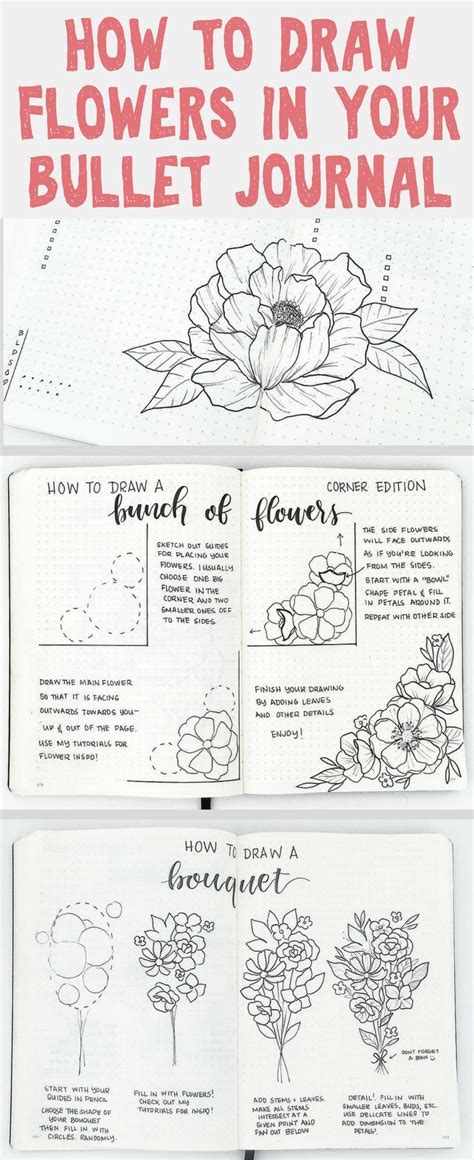 HOW TO DRAW
FLOWERS IN YOUR
BULLET JOURNAL
HOW TO DRAW A
bunch of flowers
CORNER EDITION
SKETCH OUT GUIDES
FOR PLACING YOUR
FLOWERS. I USUALLY
CHOOSE ONE BIG
FLOWER IN THE
CORNER AND TWO
SMALLER ONES OFF
TO THE SIDES.
THE SIDE FLOWERS
WILL FACE OUTWARDS
AS IF YOU'RE LOOKING
FROM THE SIDES.
START WITH A "BOWL"
SHAPE PETAL & FILL
IN PETALS AROUND IT.
REPEAT WITH OTHER SIDE
DRAW THE MAIN FLOWER
SO THAT IT IS FACING
OUTWARDS TOWARDS YOU—
UP & OUT OF THE PAGE.
USE MY TUTORIALS FOR
FLOWER INSPO!
FINISH YOUR DRAWING
BY ADDING LEAVES
AND OTHER DETAILS
ENJOY!
HOW TO DRAW A
bouquet
START WITH YOUR
GUIDES IN PENCIL
CHOOSE THE SHAPE OF
YOUR BOUQUET
THEN FILL IN WITH
CIRCLES. RANDOMLY.
FILL IN WITH FLOWERS!
CHECK OUT MY
TUTORIALS FOR INSPO!
ADD STEMS + LEAVES.
MAKE ALL STEMS
INTERSECT AT A
GIVEN POINT AND
FAN OUT BELOW
DON'T FORGET
A BOW
DETAIL! FILL IN WITH
SMALLER LEAVES, BUDS, ETC.
USE DELICATE LINES TO
ADD DIMENSION TO THE
PETALS!